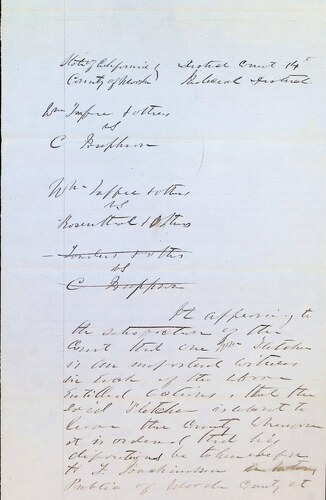 State of California District Court 14th
County of Judicial District
Wm Jaffee & others
vs
C
Wm Jaffee & others
vs
Rosenthal & others
& others
vs
C
It appearing to
the satisfaction of the
Court that one Wm Fletcher
is an important witness
in Each of the above
Entitled actions, & that the
said Fletcher is about to
leave the County Whereupon
it is ordered that his
deposition be taken before
H F a Notary
Public of County at